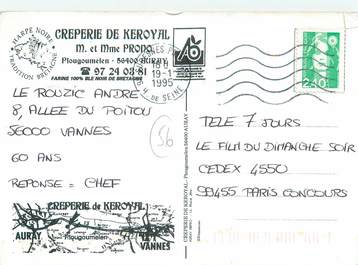 HARPE NOIRE
TRADITION BRETAGNE
CREPERIE DE KEROYAL
M. et Mme PRODO
Plougoumelen - 56400 AURAY
☎ 97 24 03 81
FARINE 100% BLE NOIR DE BRETAGNE
19-1
1995
DE SEINE
2,80
LE ROUZIC ANDRE
8, ALLEE DU POITOU
56000 VANNES
56
60 ANS
REPONSE = CHEF
TELE 7 JOURS
LE FILM DU DIMANCHE SOIR
CEDEX 4550
99455 PARIS CONCOURS
CREPERIE DE KEROYAL - Plougoumelen 56400 AURAY
CREPERIE DE KEROYAL
Plougoumelen
AURAY
VANNES